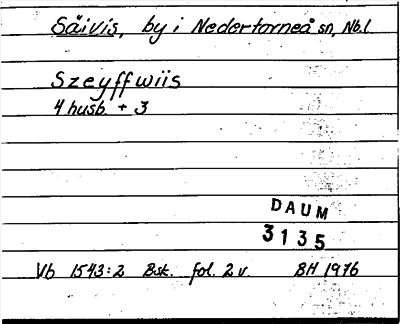 Säivis, by i Nedertorneå sn, Nb.l.
Szeyffwiis
4 husb. + 3
DAUM
3135
Vb 1543:2 Bsk. fol. 2 v. BH 1976